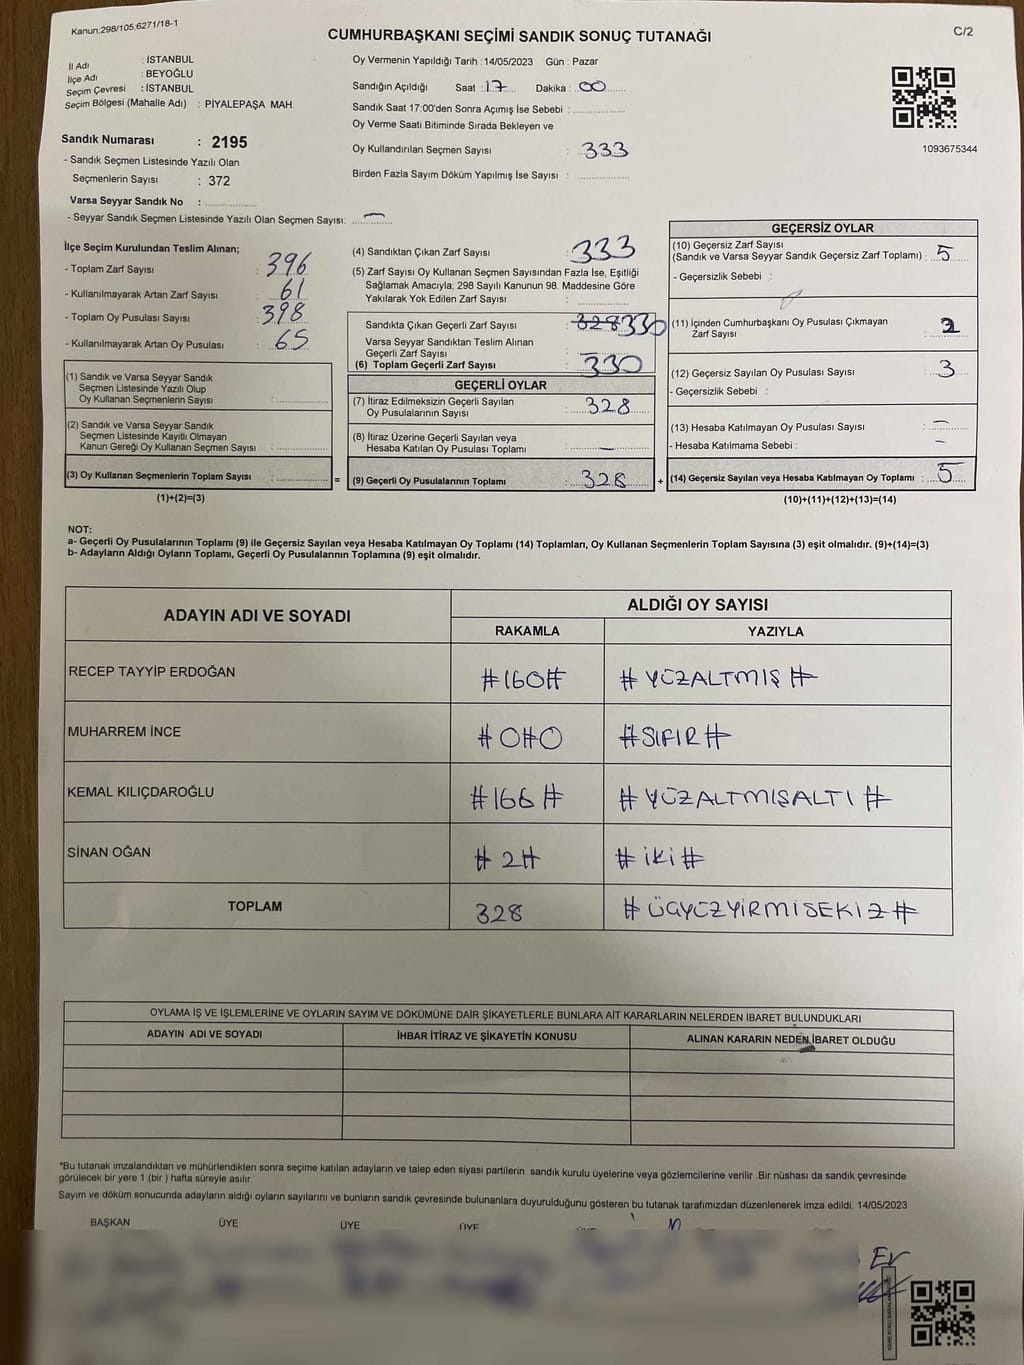 Kanun;298/105,6271/18-1
C/2
CUMHURBAŞKANI SEÇİMİ SANDIK SONUÇ TUTANAĞI
İl Adı : İSTANBUL
İlçe Adı : BEYOĞLU
Seçim Çevresi : İSTANBUL
Seçim Bölgesi (Mahalle Adı) : PİYALEPAŞA MAH.
Sandık Numarası : 2195
- Sandık Seçmen Listesinde Yazılı Olan
Seçmenlerin Sayısı : 372
Varsa Seyyar Sandık No :
- Seyyar Sandık Seçmen Listesinde Yazılı Olan Seçmen Sayısı: —
Oy Vermenin Yapıldığı Tarih : 14/05/2023 Gün : Pazar
Sandığın Açıldığı Saat : 17 Dakika : 00
Sandık Saat 17:00'den Sonra Açımış İse Sebebi :
Oy Verme Saati Bitiminde Sırada Bekleyen ve
Oy Kullandırılan Seçmen Sayısı : 333
Birden Fazla Sayım Döküm Yapılmış İse Sayısı :
1093675344
İlçe Seçim Kurulundan Teslim Alınan;
- Toplam Zarf Sayısı : 396
- Kullanılmayarak Artan Zarf Sayısı : 61
- Toplam Oy Pusulası Sayısı : 398
- Kullanılmayarak Artan Oy Pusulası : 65
(1) Sandık ve Varsa Seyyar Sandık
Seçmen Listesinde Yazılı Olup
Oy Kullanan Seçmenlerin Sayısı :
(2) Sandık ve Varsa Seyyar Sandık
Seçmen Listesinde Kayıtlı Olmayan
Kanun Gereği Oy Kullanan Seçmen Sayısı :
(3) Oy Kullanan Seçmenlerin Toplam Sayısı : =
(1)+(2)=(3)
(4) Sandıktan Çıkan Zarf Sayısı : 333
(5) Zarf Sayısı Oy Kullanan Seçmen Sayısından Fazla İse, Eşitliği
Sağlamak Amacıyla; 298 Sayılı Kanunun 98. Maddesine Göre
Yakılarak Yok Edilen Zarf Sayısı :
Sandıkta Çıkan Geçerli Zarf Sayısı : 328 330
Varsa Seyyar Sandıktan Teslim Alınan
Geçerli Zarf Sayısı :
(6) Toplam Geçerli Zarf Sayısı : 330
GEÇERLİ OYLAR
(7) İtiraz Edilmeksizin Geçerli Sayılan
Oy Pusulalarının Sayısı : 328
(8) İtiraz Üzerine Geçerli Sayılan veya
Hesaba Katılan Oy Pusulası Toplamı : —
(9) Geçerli Oy Pusulalarının Toplamı : 328 +
GEÇERSİZ OYLAR
(10) Geçersiz Zarf Sayısı
(Sandık ve Varsa Seyyar Sandık Geçersiz Zarf Toplamı) : 5
- Geçersizlik Sebebi :
(11) İçinden Cumhurbaşkanı Oy Pusulası Çıkmayan
Zarf Sayısı :
(12) Geçersiz Sayılan Oy Pusulası Sayısı : 3
- Geçersizlik Sebebi :
(13) Hesaba Katılmayan Oy Pusulası Sayısı : —
- Hesaba Katılmama Sebebi : —
(14) Geçersiz Sayılan veya Hesaba Katılmayan Oy Toplamı : 5
(10)+(11)+(12)+(13)=(14)
NOT:
a- Geçerli Oy Pusulalarının Toplamı (9) ile Geçersiz Sayılan veya Hesaba Katılmayan Oy Toplamı (14) Toplamları, Oy Kullanan Seçmenlerin Toplam Sayısına (3) eşit olmalıdır. (9)+(14)=(3)
b- Adayların Aldığı Oyların Toplamı, Geçerli Oy Pusulalarının Toplamına (9) eşit olmalıdır.
ADAYIN ADI VE SOYADI
ALDIĞI OY SAYISI
RAKAMLA YAZIYLA
RECEP TAYYİP ERDOĞAN #160# #YÜZALTMIŞ#
MUHARREM İNCE #0#0 #SIFIR#
KEMAL KILIÇDAROĞLU #166# #YÜZALTMIŞALTI#
SİNAN OĞAN #2# #İKİ#
TOPLAM 328 #ÜÇYÜZYİRMİSEKİZ#
OYLAMA İŞ VE İŞLEMLERİNE VE OYLARIN SAYIM VE DÖKÜMÜNE DAİR ŞİKAYETLERLE BUNLARA AİT KARARLARIN NELERDEN İBARET BULUNDUKLARI
ADAYIN ADI VE SOYADI İHBAR İTİRAZ VE ŞİKAYETİN KONUSU ALINAN KARARIN NEDEN İBARET OLDUĞU
*Bu tutanak imzalandıktan ve mühürlendikten sonra seçime katılan adayların ve talep eden siyasi partilerin sandık kurulu üyelerine veya gözlemcilerine verilir .Bir nüshası da sandık çevresinde
görülecek bir yere 1 (bir ) hafta süreyle asılır.
Sayım ve döküm sonucunda adayların aldığı oyların sayılarını ve bunların sandık çevresinde bulunanlara duyurulduğunu gösteren bu tutanak tarafımızdan düzenlenerek imza edildi. 14/05/2023
BAŞKAN ÜYE ÜYE ÜYE
Er